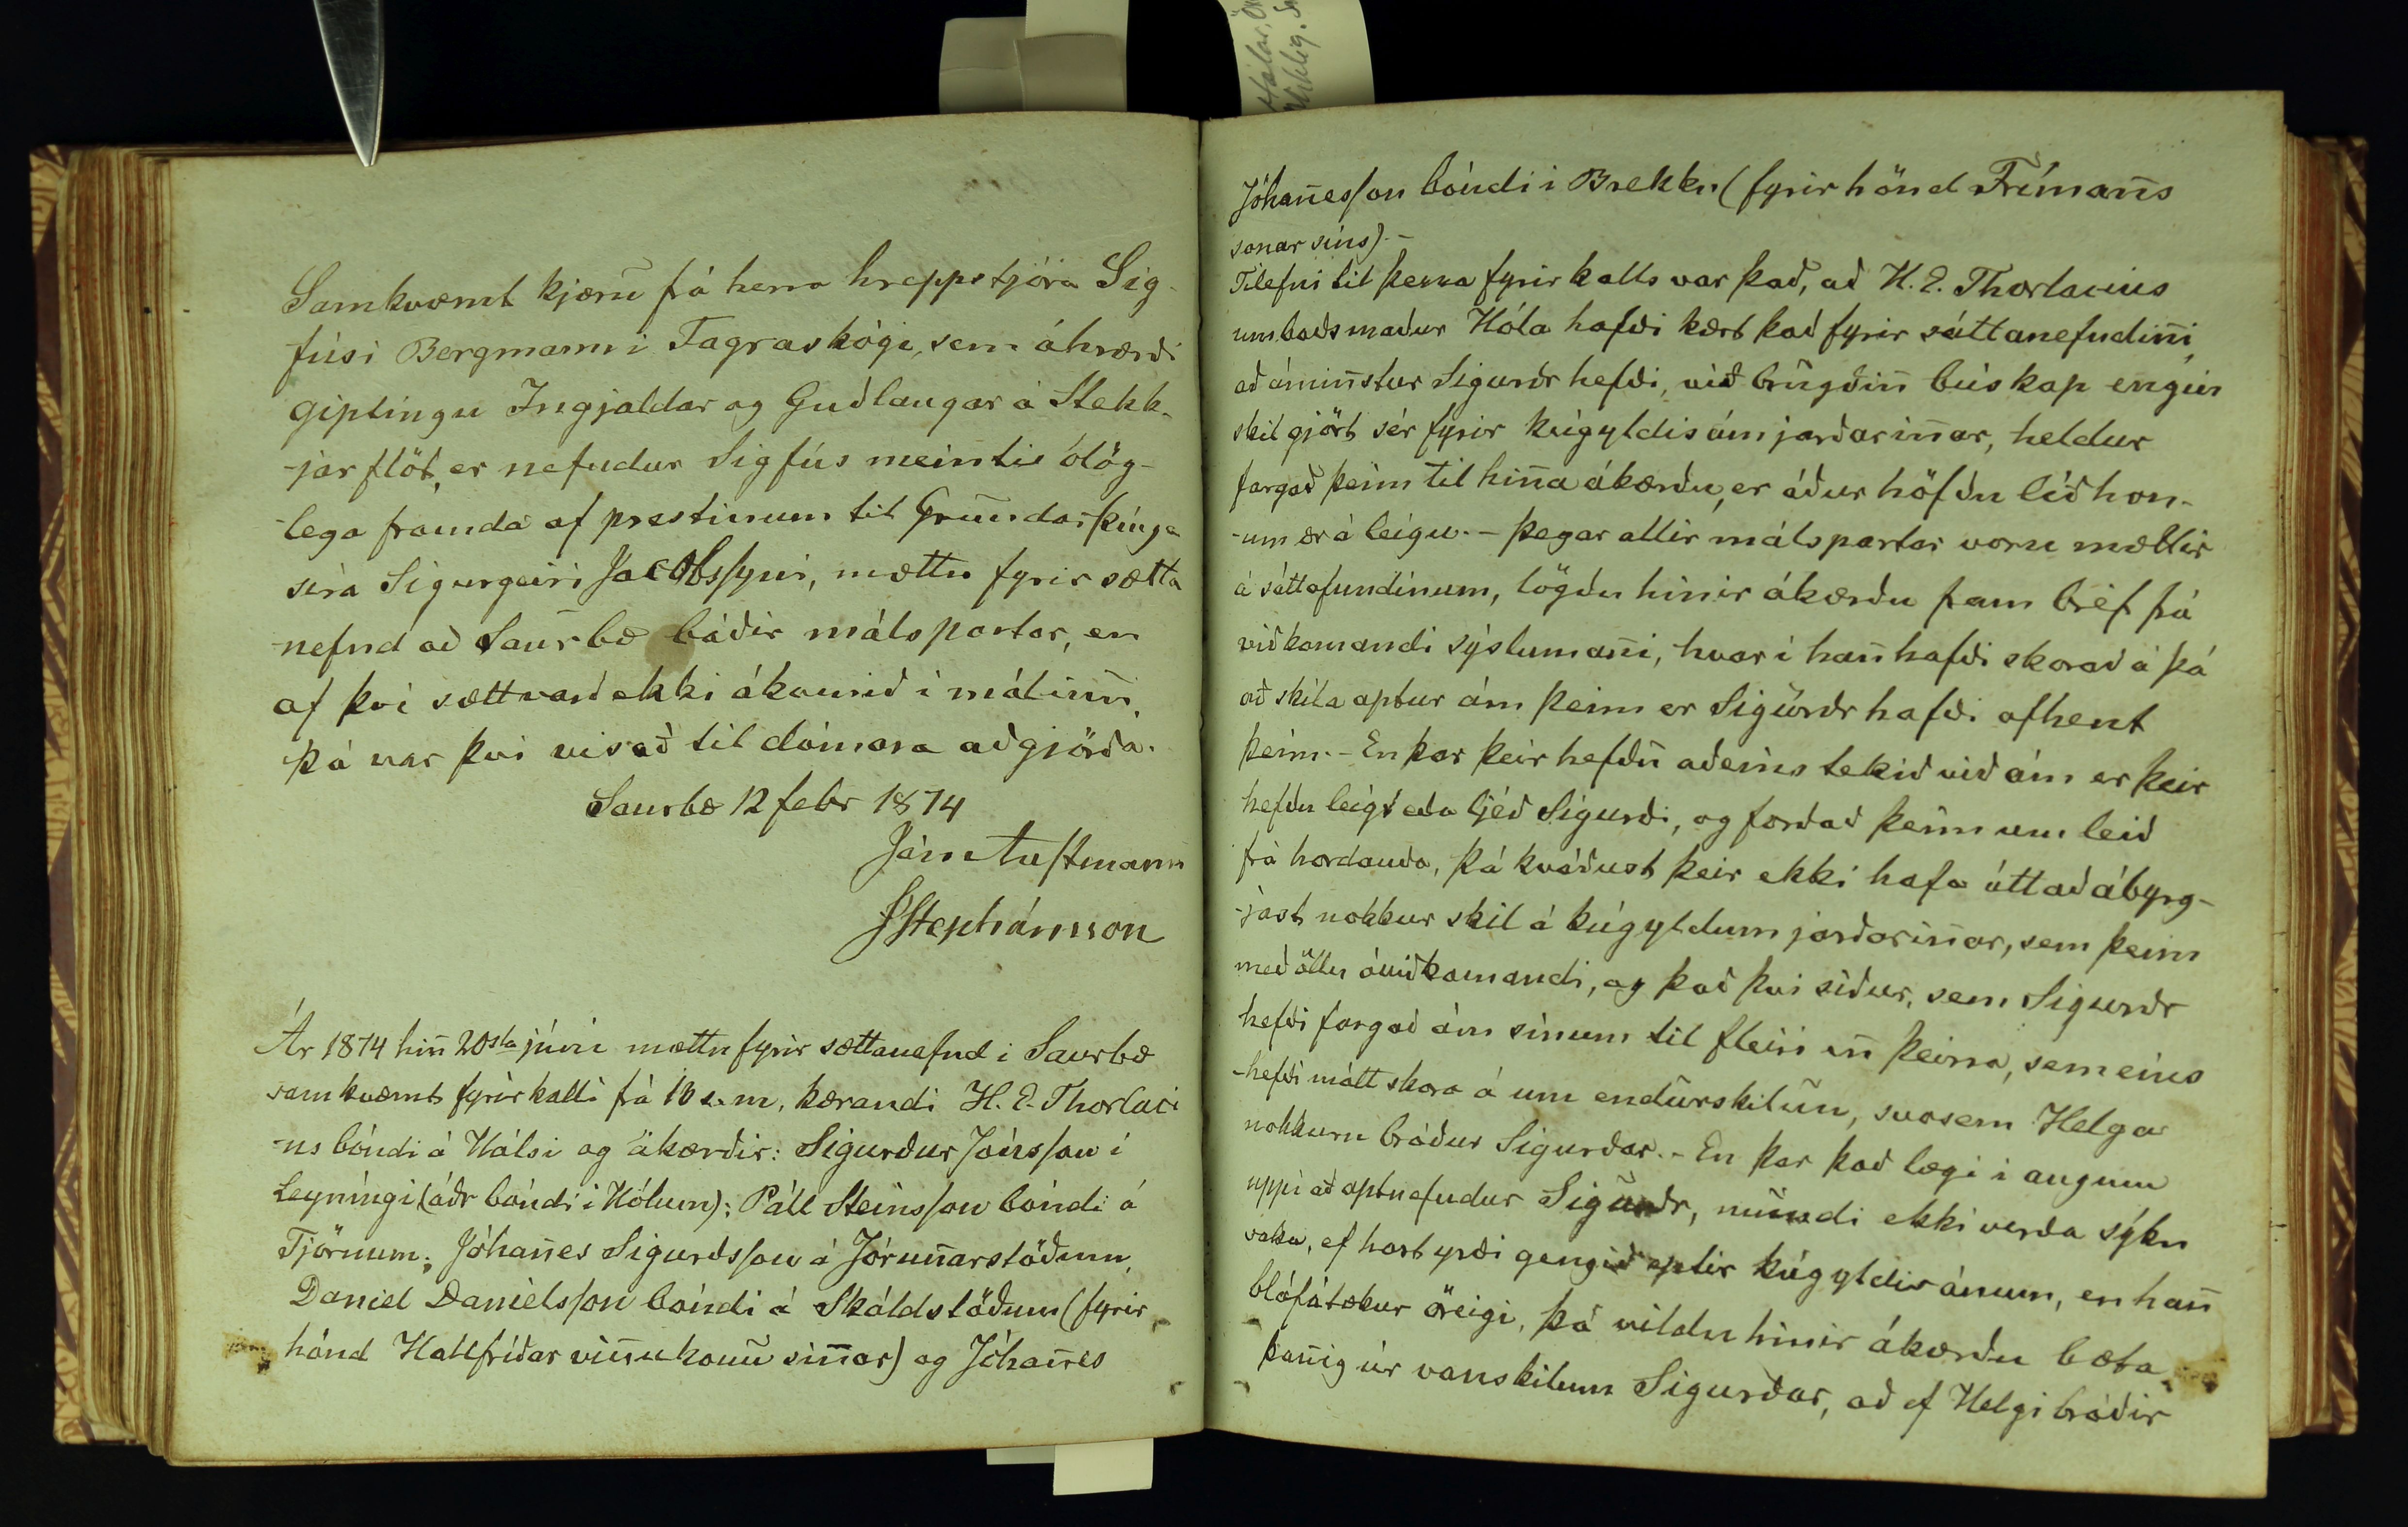 Samkvæmt kjæru̅ frá herra hreppstjóra Sig-
fúsi Bergmann i Fagraskógi, sem áhrærði
giptingu Ingjaldar og Guðlaugar á Stekk-
-jarflöt, er nefndur Sigfús meinti ólög-
-lega framda af prestinum til Grundarþínga
sira Sigurgeiri Jacobssyni, mættu fyrir sætta
-nefnd að Saurbæ báðir málspartar, en
af því sætt varð ekki ákomið i máliñi,
þá var því visað til dómara aðgjörða.
Saurbæ 12 febr 1874
Jón Austmann
JStephánsson
Ár 1874 hiñ 20sta júní mættu fyrir sættanefnd i Saurbæ
samkvæmt fyrirkalli frá 10 s. m. kærandi H. E. Thorlaci
-us bóndi á Hálsi og ákærðir: Sigurður Jónsson í
Leyníngi (áðr bóndi i Hólum); Páll Steinsson bóndi á
Tjörnum; Jóhañes Sigurðsson á Jóruñarstöðum,
Daniel Danielsson bóndi á Skáldstöðum (fyrir
hönd Hallfríðar viñukonu siñar) og Jóhañes
Jóhañesson bóndi i Brekku (fyrir hönd Frímañs
sonar síns).-
Tilefni til þessa fyrirkalls var það, að H. E. Thorlacius
umboðsmaður Hóla hafði kært það fyrir sáttanefndiñi,
að ámiñstur Sigurðr hefði, við brugðiñ búskap engin
skil gjört sér fyrir kúgyldisám jarðariñar, heldur
fargað þeim til hiña ákærðu, er áður höfðu léð hon-
-um ær á leigu.- Þegar allir málspartar voru mættir
á sáttafundinum, lögðu hinir ákærðu fram bréf frá
viðkomandi sýslumañi, hvar í hañ hafði skorað á þá
að skila aptur ám þeim er Sigurðr hafði afhent
þeim.- En þar þeir hefðu aðeins tekið við ám er þeir
hefðu leigt eða ljéð Sigurði, og forðað þeim um leið
frá hordauða, þá kváðust þeir ekki hafa átt að ábyrg-
-jast nokkur skil á kúgyldum jarðariñar, sem þeim
með öllu óviðkomandi, og það því síður, sem Sigurðr
hefði fargað ám sínum til fleiri eñ þeirra, sem eins
-hefði mátt skora á um endurskilun, svosem Helga
nokkurn bróður Sigurðar.- En þar það lægi i augum
uppi að optnefndur Sigurðr, mundi ekki verða sýkn
saka, ef hart yrði gengið eptir kúgyldisánum, en hañ
bláfátækur öreigi, þá vildu hinir ákærðu bæta
þañig úr vanskilum Sigurðar, að ef Helgi bróðir